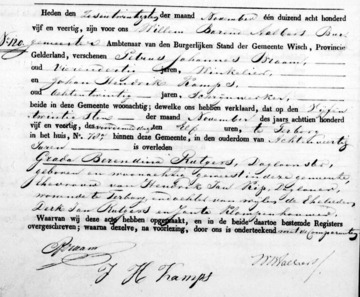 Heden den Zesentwintigsten der maand November één duizend acht honderd
vijf en veertig, zijn voor ons Willem Barend Aalbers Bur
N. 120. gemeester Ambtenaar van den Burgerlijken Stand der Gemeente Wisch, Provincie
Gelderland, verschenen Johannes Braam,
oud jaren, Winkelier
en Johan Hendrik Tramps
oud achtentwintig jaren, Schoenmaker,
beide in deze Gemeente woonachtig; dewelke ons hebben verklaard, dat op den Vijfen
twintigsten November des jaars achttien honderd
vijf en veertig, des ten Elf uren, te Terborg
in het huis, N.° binnen deze Gemeente, in den ouderdom van Acht
Jaren is overleden
Grada Berendina Rutgers, Dagloonster,
geboren en woonachtig in dese gemeente,
van Hendrik Jan
wonende te Terborg, van de Ehelieden
Derk Jan Rutgers en
Waarvan wij deze acte hebben opgemaakt, en in de beide daartoe bestemde Registers
overgeschreven; waarna dezelve, na voorlezing, door ons is onderteekend met de Comparanten
Braam
J H Tramps
WBAalbers